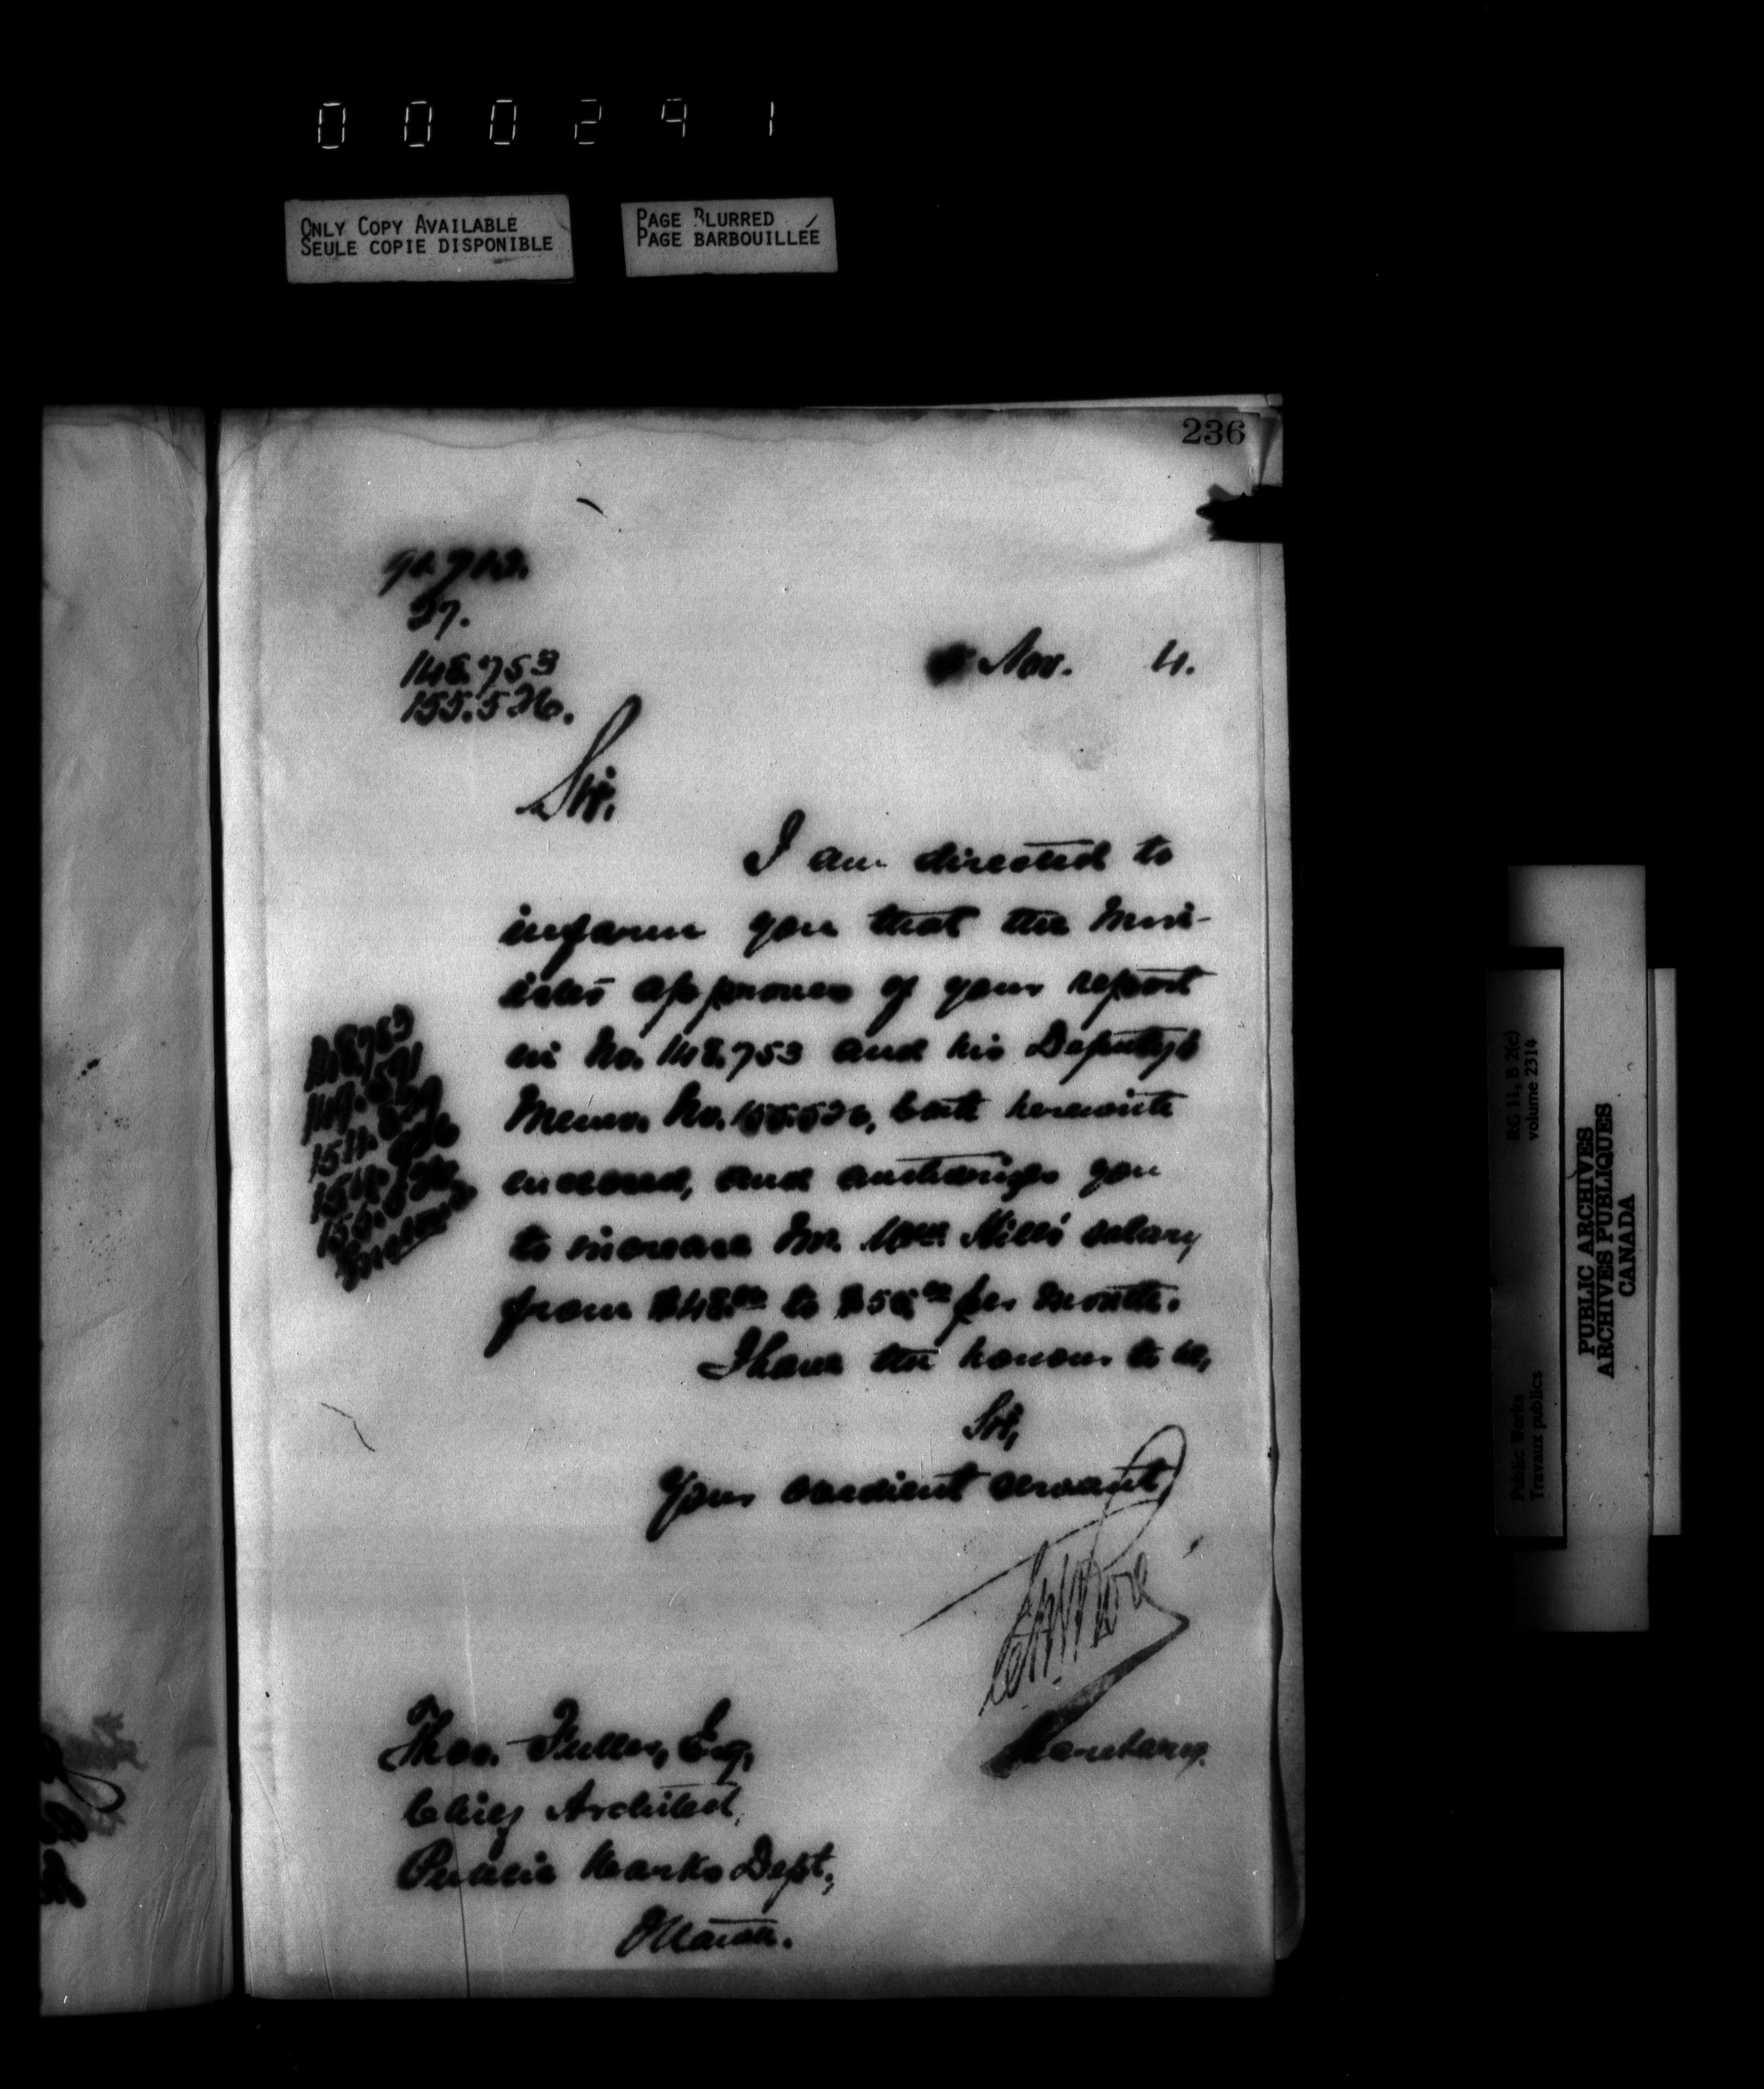 000291
ONLY COPY AVAILABLE
SEULE COPIE DISPONIBLE
PAGE BLURRED
PAGE BARBOUILLÉE
236
27.
148.753
155.526.
Nov. 4.
Sir,
I am directed to
inform you that the Mini-
ister approves of your report
in No. 148.753 and his Deputy's
Memo. No. 155.526, both herewith
enclosed, and authorizes you
to increase Mr. Wm. Mills' salary
from $48.00 to $50.00 per month.
I have the honour to be,
Sir,
Your obedient servant,
Secretary.
148.753
Thos. Fuller, Esq,
Chief Architect,
Public Works Dept.,
Ottawa.
RG 11, B 2(c)
volume 2314
Public Works
Travaux publics
PUBLIC ARCHIVES
ARCHIVES PUBLIQUES
CANADA